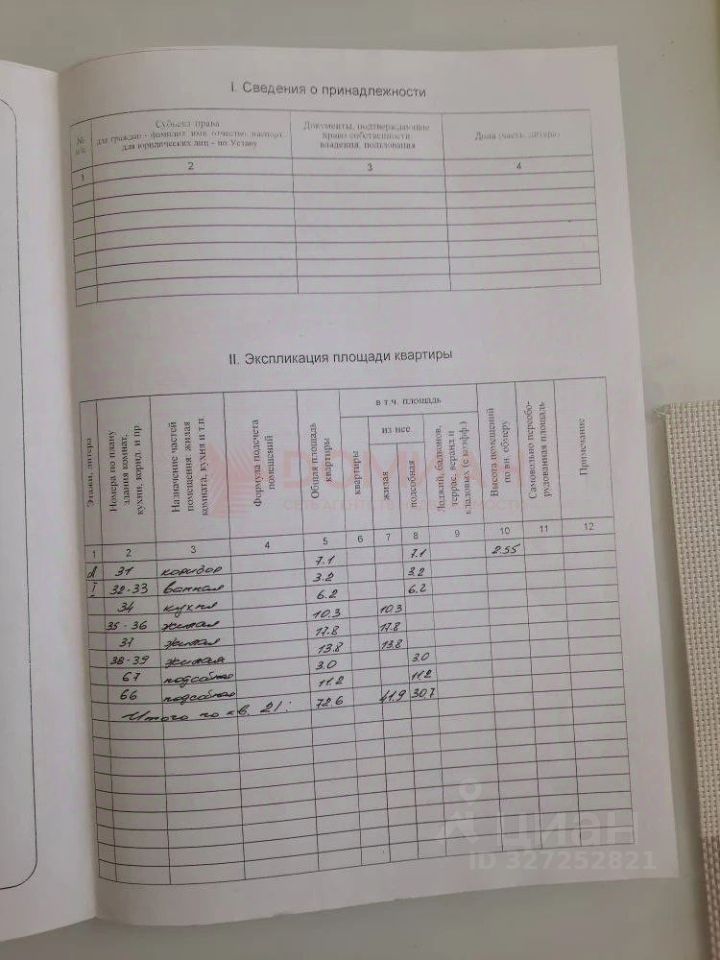 I. Сведения о принадлежности
№ п/п
Субъект права
для граждан - фамилия, имя, отчество, паспорт,
для юридических лиц - по Уставу
Документы, подтверждающие
право собственности,
владения, пользования
Доля (часть, литера)
1 2 3 4
II. Экспликация площади квартиры
Этажи, литера
Номера по плану
здания комнат,
кухни, корид. и пр
Назначение частей
помещения: жилая
комната, кухня и т.п
Формула подсчета
помещений
Общая площадь
квартиры
в т.ч. площадь
квартиры
из нее
жилая
подсобная
Лоджий, балконов,
террас, веранд и
кладовых (с коэфф.)
Высота помещений
по вн. обмеру
Самовольно переобо-
рудованная площадь
Примечание
1 2 3 4 5 6 7 8 9 10 11 12
31 коридор 7.1 7.1 2.55
I 32-33 ванная 3.2 3.2
34 кухня 6.2 6.2
35-36 жилая 10.3 10.3
37 жилая 17.8 17.8
38-39 жилая 13.8 13.8
67 подсобная 3.0 3.0
66 подсобная 11.2 11.2
Итого по кв. 21: 72.6 41.9 30.7
DOMKA
СЕТЬ АГЕНТСТВ НЕДВИЖИМОСТИ
циан
ID 327252821